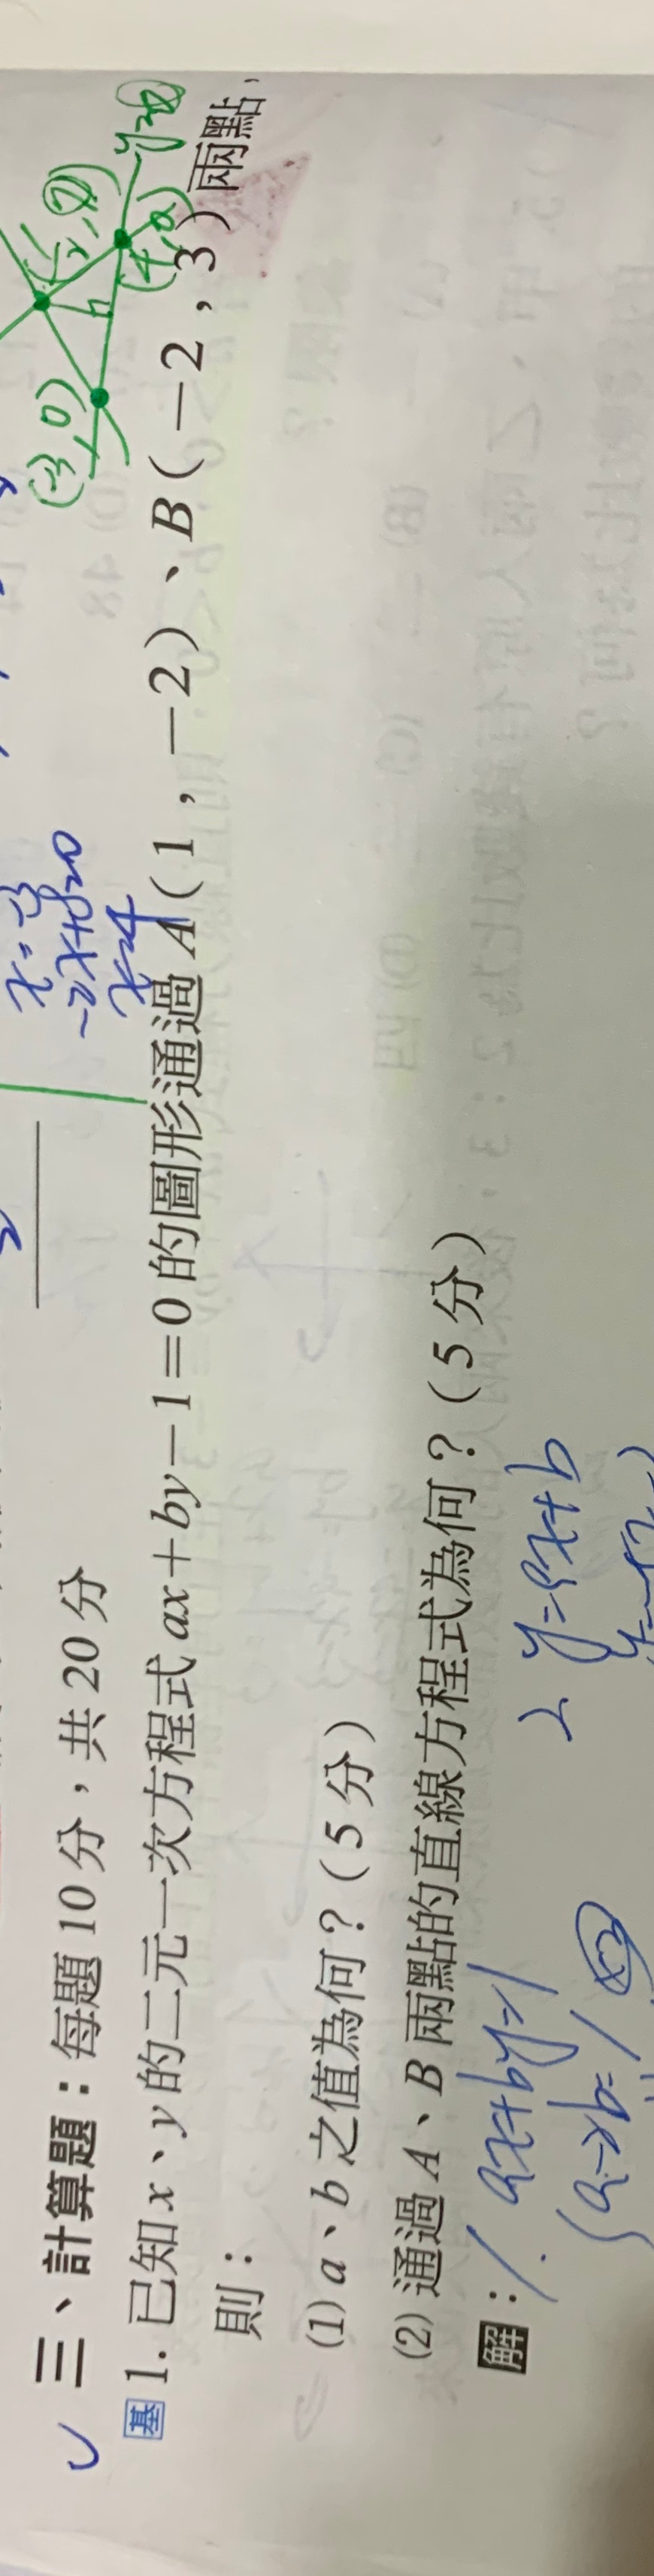 (4, 0)
x=-3
-2x+8=0
x=4
三、計算題：每題 10 分，共 20 分
基 1. 已知 x、y 的二元一次方程式 ax＋by－1＝0 的圖形通過 A（1，－2）、B（－2，3）兩點，
則：
(1) a、b 之值為何？（5 分）
(2) 通過 A、B 兩點的直線方程式為何？（5 分）
解：